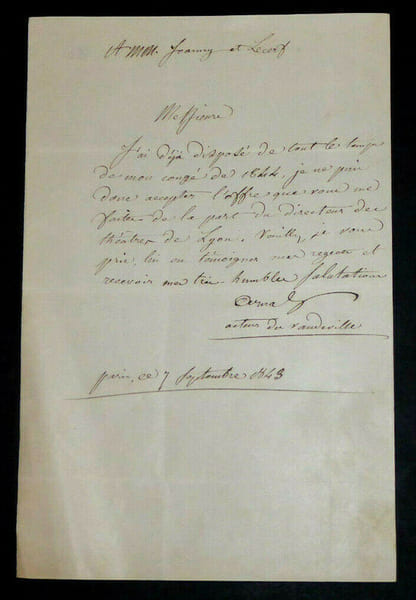 A MM. Franny et Lecerf
Messieurs
J'ai déjà disposé de tout le temps
de mon congé de 1844, je ne puis
donc accepter l'offre que vous me
faites de la part du directeur des
théâtres de Lyon. Veuillez, je vous
prie, lui en témoigner mes regrets et
recevoir mes très humbles salutations
Arnal
acteur du vaudeville
paris, ce 7 septembre 1843